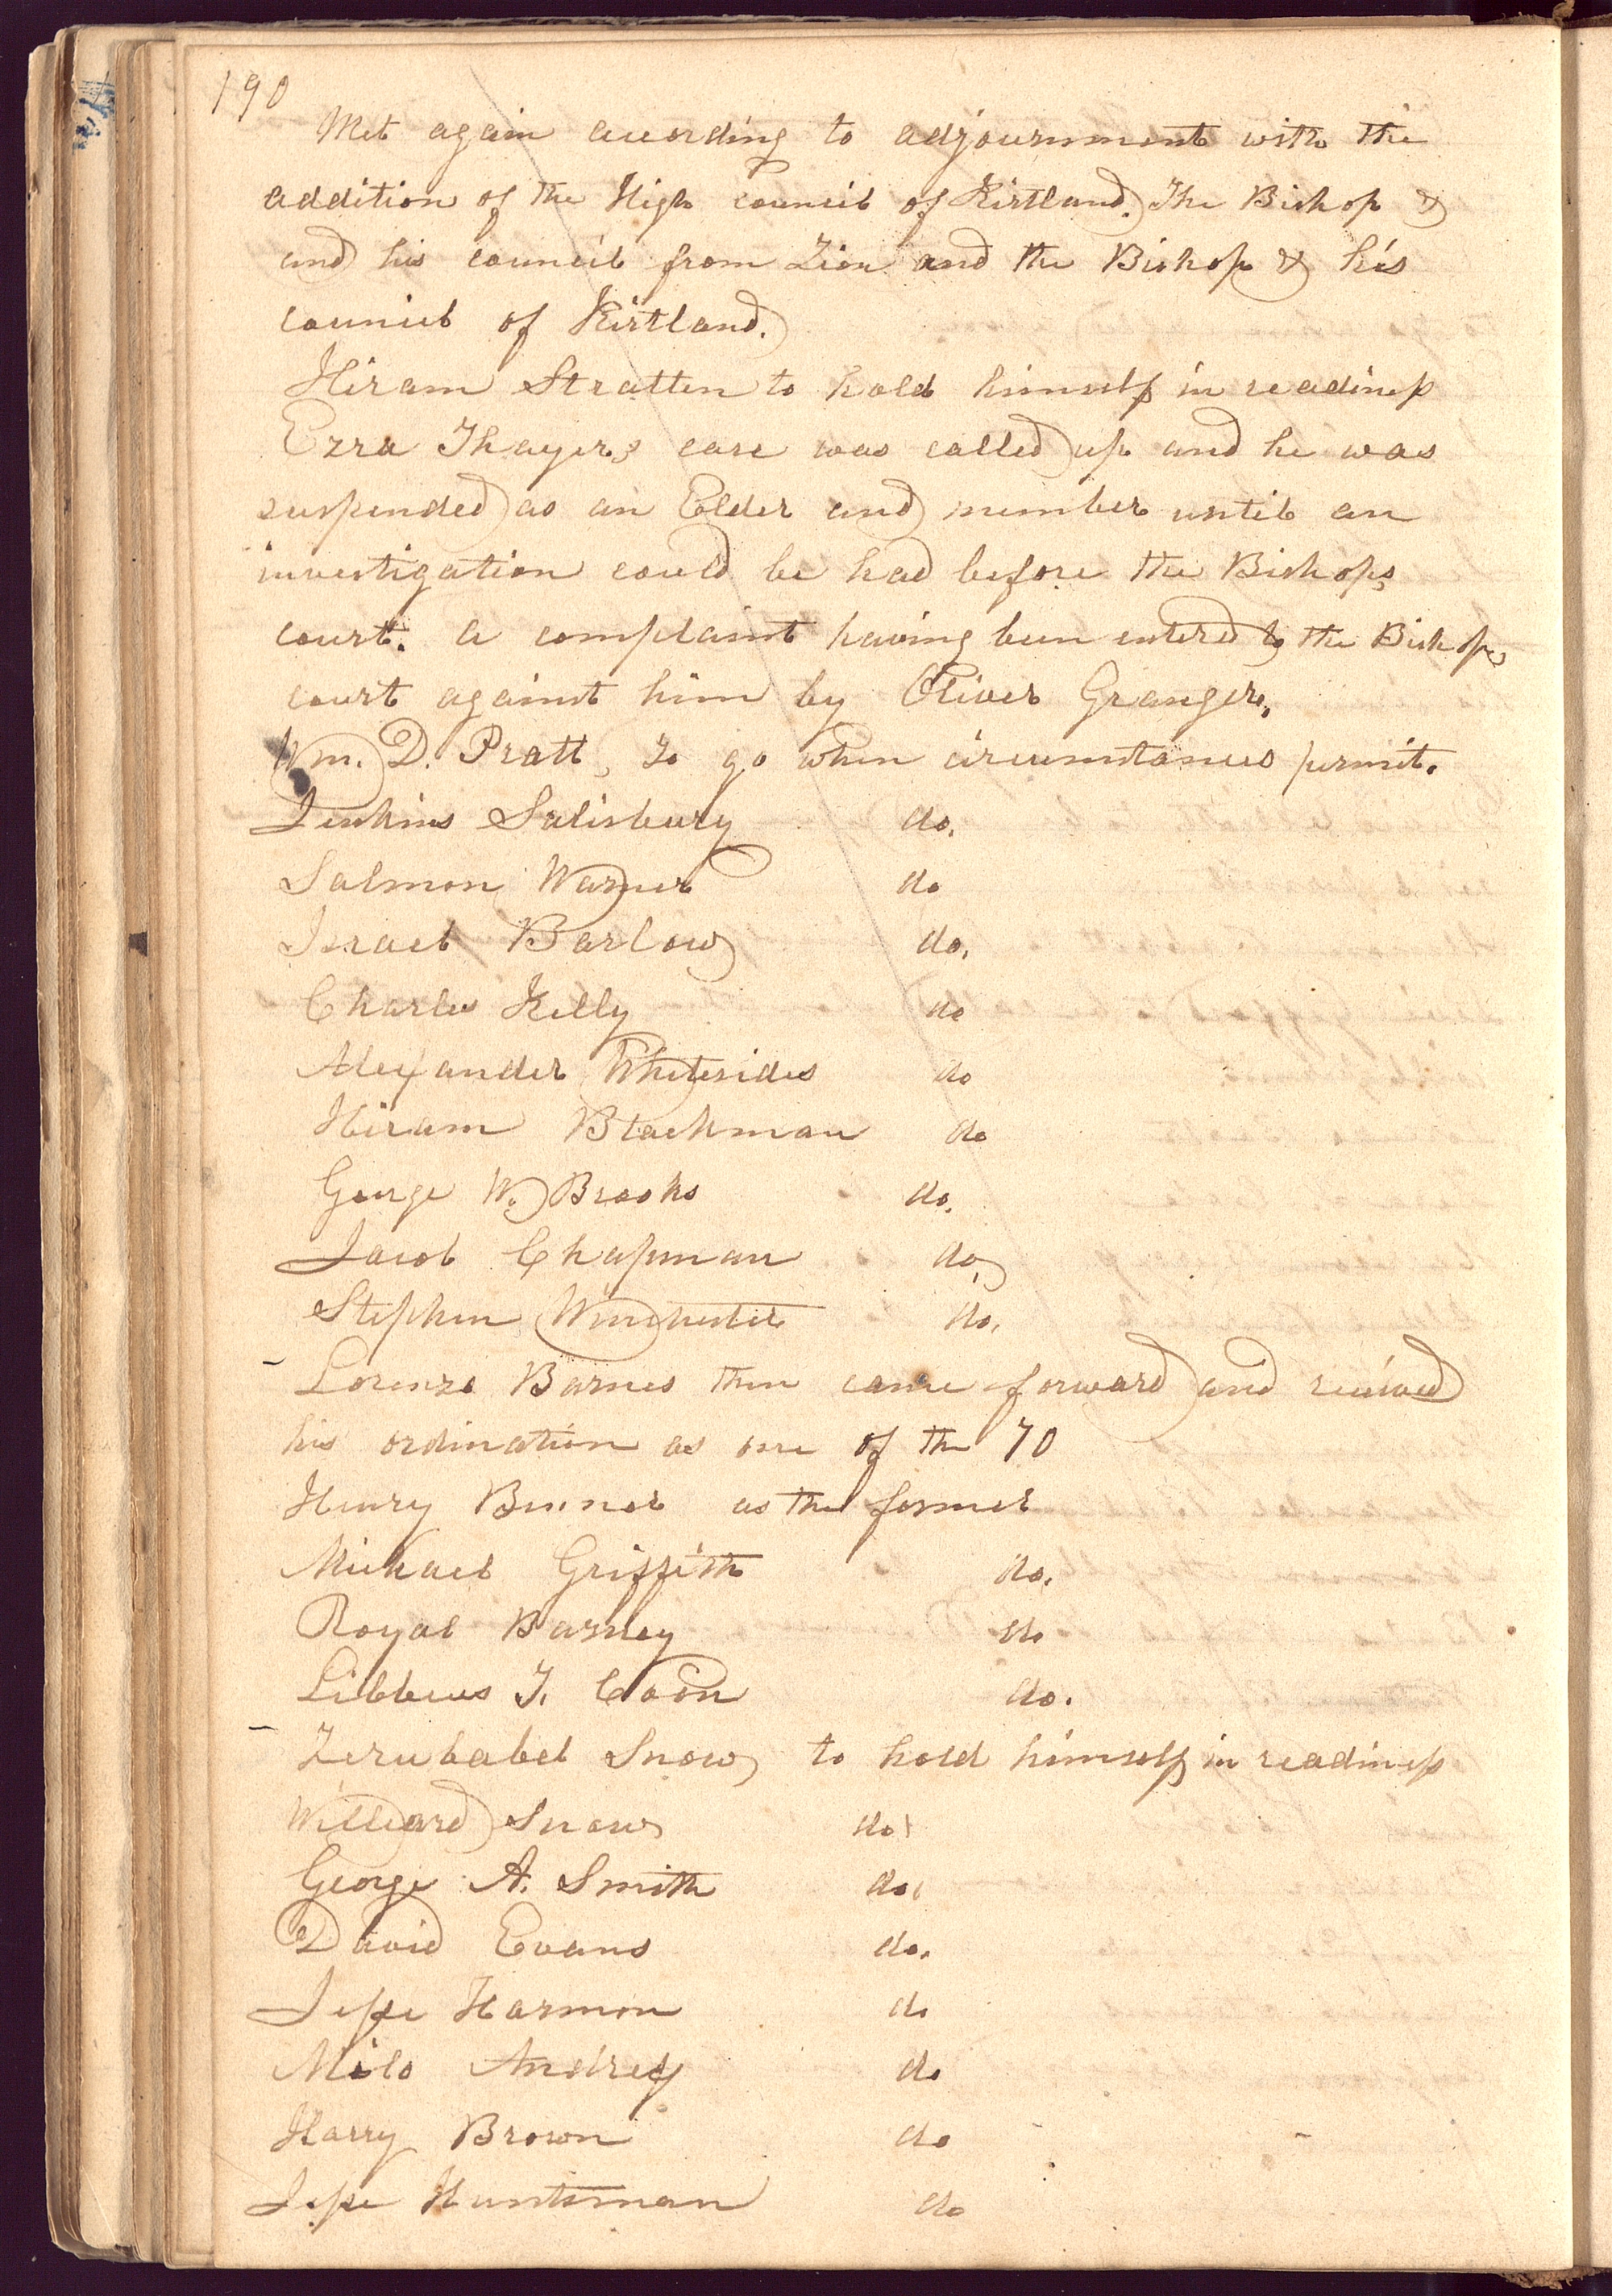 190
Met again according to adjournment with the
addition of the High council of Kirtland. The Bishop &
and his council from Zion and the Bishop & his
council of Kirtland.
Hiram Stratten to hold himself in readiness
Ezra Thayer,s case was called up and he was
suspended as an Elder and member until an
investigation could be had before the Bishops
court. a complaint having been entered to the Bishops
court against him by Oliver Granger.
Wm. D. Pratt, To go when circumstances permit.
Jenkins Salisbury do.
Salmon Warner do
Israel Barlow do.
Charles Kelly do
Alexander Whitesides do
Hiram Blackman do
George W. Brooks do.
Jacob Chapman do,
Stephen Winchester do.
Lorenzo Barnes then came forward and recieved
his ordination as one of the 70
Henry Benner as the former
Michael Griffith do.
Royal Barney do
Libbeus T. Coon do.
Zerubabel Snow to hold himself in readiness
Williard Snow do.
George A. Smith do.
David Evans do.
Jesse Harmon do
Milo Andrey do
Harry Brown do
Jesse Huntsman do